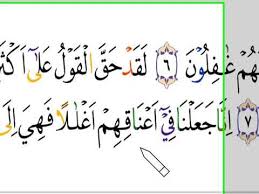 هُمْ غٰفِلُوْنَ ﴿٦﴾ لَقَدْ حَقَّ الْقَوْلُ عَلٰٓى اَكْثَ
﴿٧﴾ اِنَّا جَعَلْنَا فِيْٓ اَعْنَاقِهِمْ اَغْلٰلًا فَهِيَ اِلَى